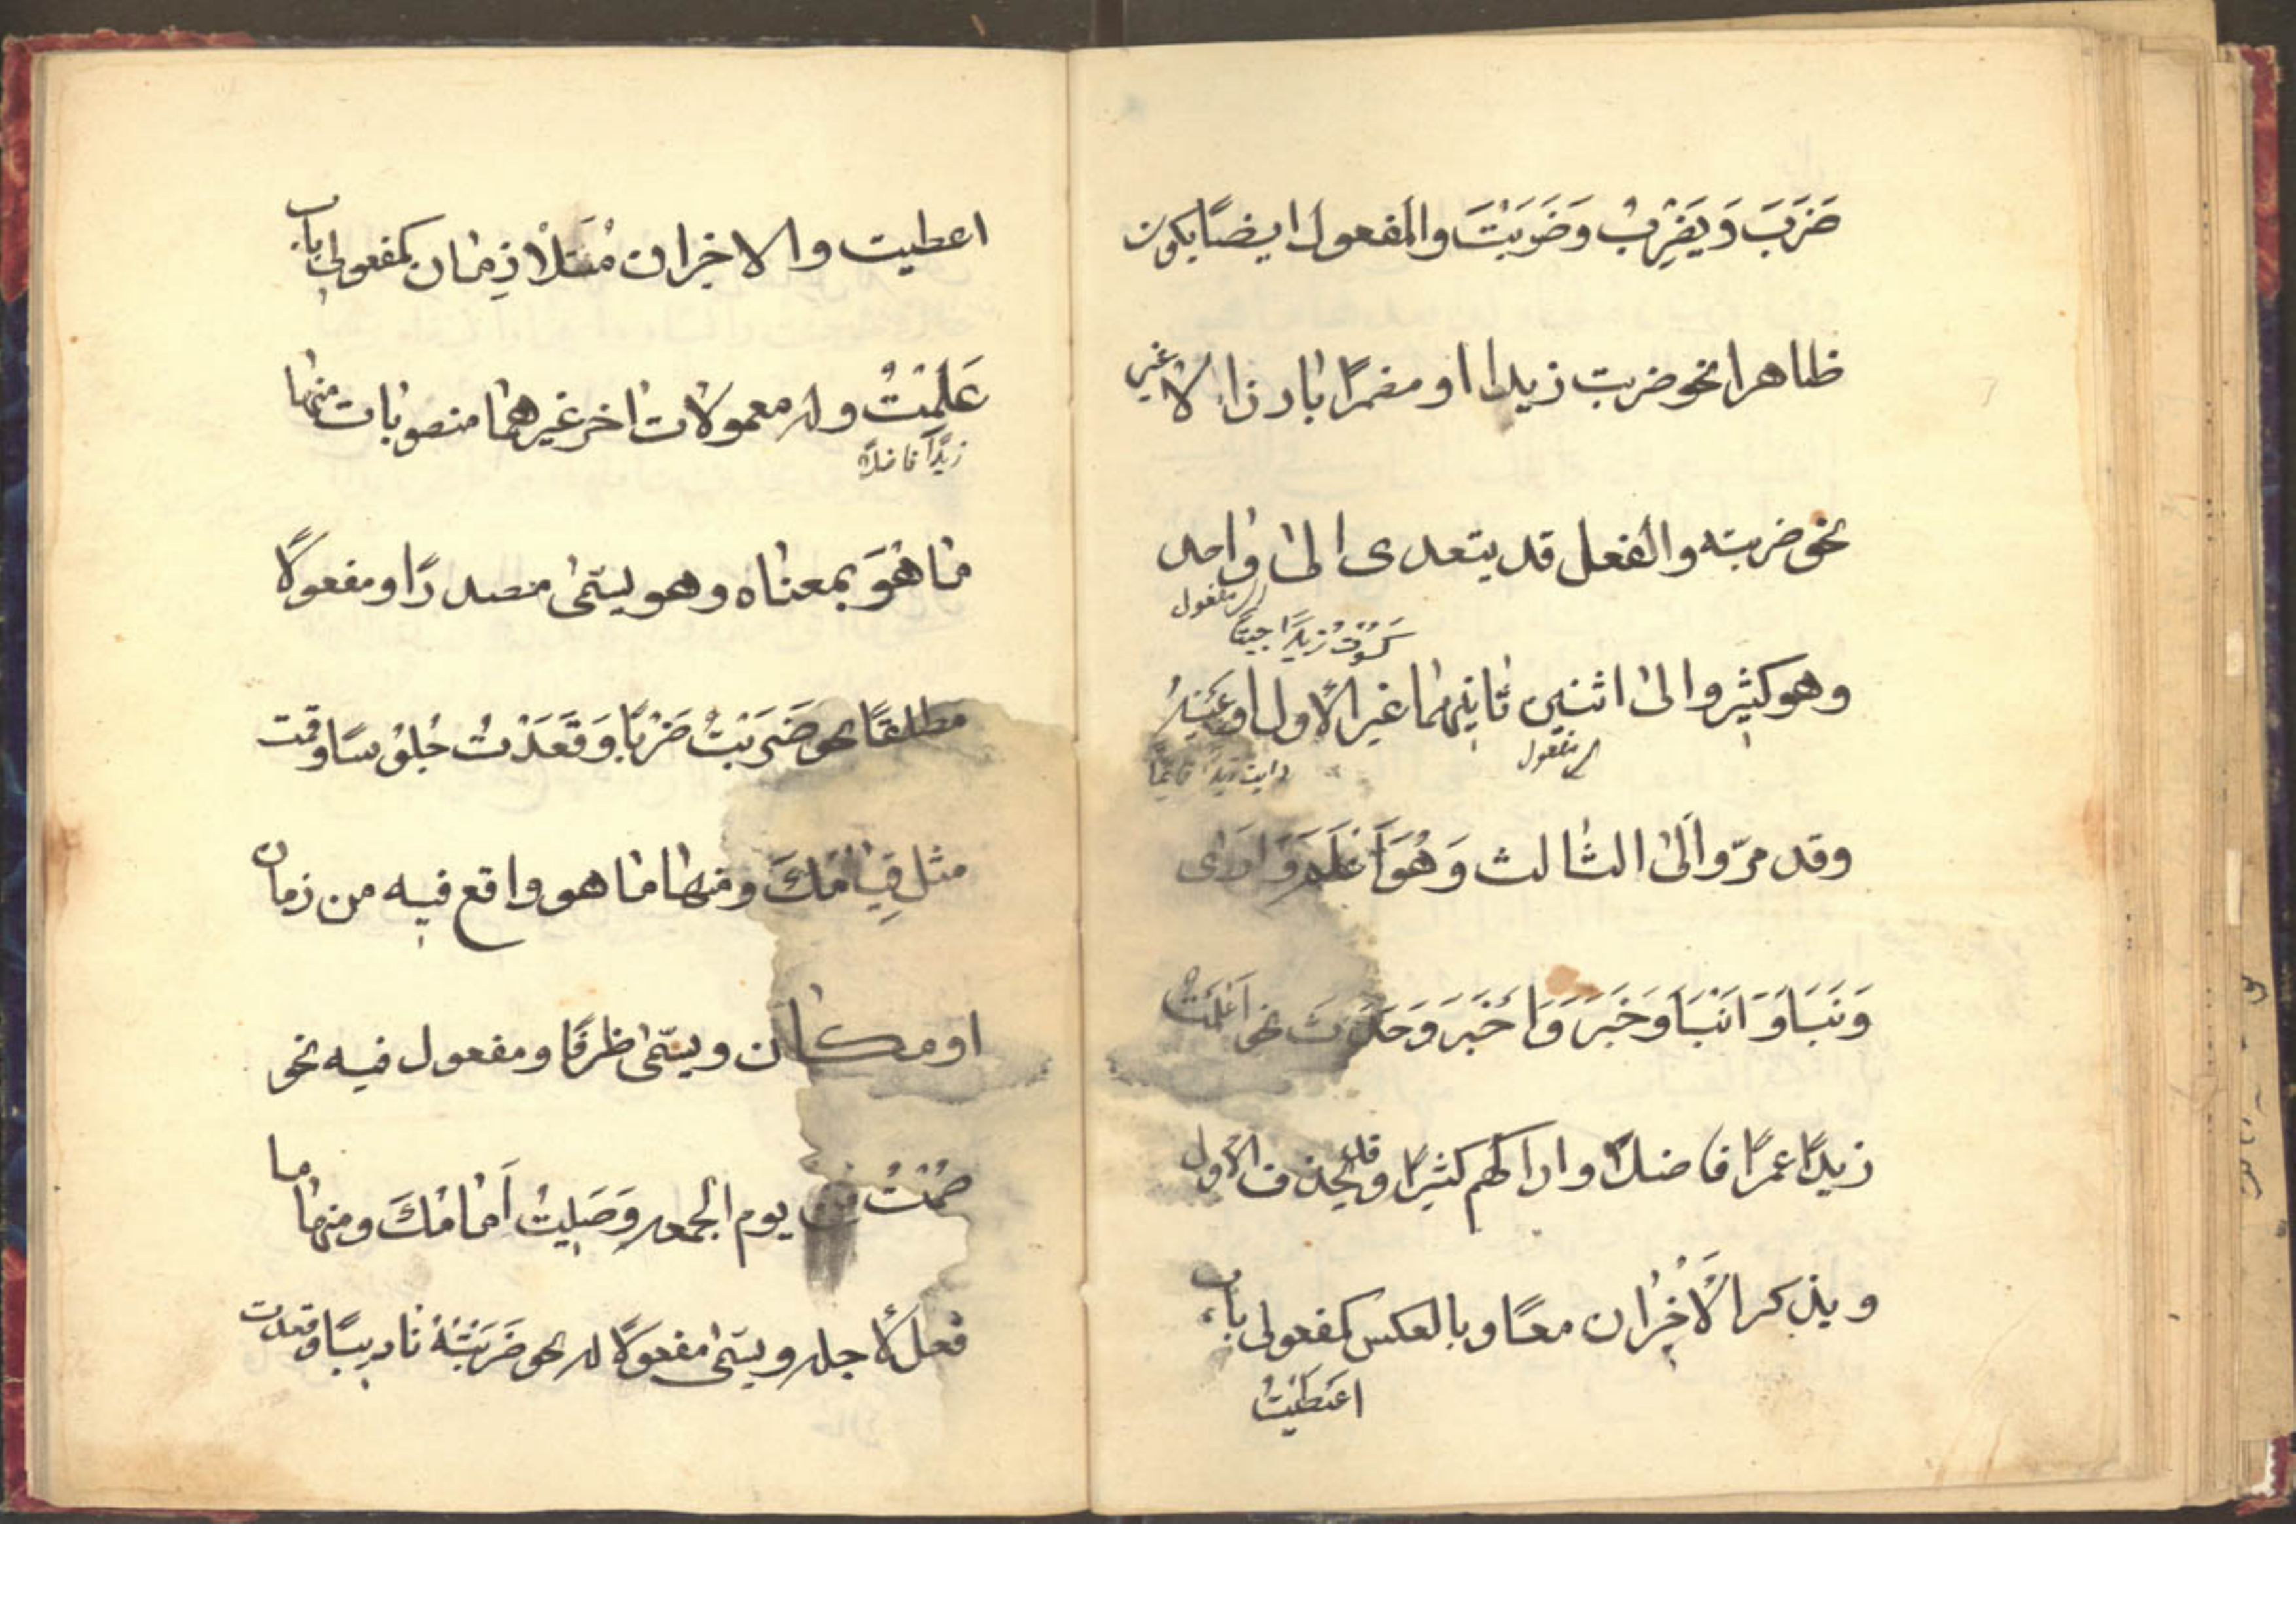 ضَرَبَ وَيَضْرِبُ وَضَرَبْتَ والمفعول ايضًا يكون
ظاهرا نحو ضربت زيدا او مضمرًا بارزا لا غير
نحو ضربته والفعل قد يتعدى الى واحد
الى مفعول
كسَوْتُ زيدًا جبةً
وهو كثير والى اثنين ثانيهما غير الاول او عينه
الى مفعول
رايت زيدًا قايمًا
وقد مرّ والى الثالث وَهُوَ اَعْلَمَ وَاَرَى
وَنَبَّاَ وَاَنْبَاَ وَخَبَّرَ وَاَخْبَرَ وَحَدَّثَ نحو اَعْلَمْتُ
زيدًا عمرًا فاضلًا واراكهم كثيرًا وقد يحذف الاول
ويذكر الْاَخِرَان معًا وبالعكس كمفعولى باب
اَعْطَيْتُ
اعطيت والاخران مُتَلَازِمَان كمفعولى باب
عَلِمْتُ وله معمولات اخر غيرهما منصوبات منها
زيدًا فاضلًا
مَا هُوَ بمعناه وهو يسمّى مصدرًا ومفعولًا
مطلقًا نحو ضَرَبْتُ ضَرْبًا وَقَعَدْتُ جُلُوسًا وقمت
مثل قِيَامَكَ ومنها ما هو واقع فيه من زمان
او مكان ويسمّى ظرفًا ومفعول فيه نحو
صُمْتُ يوم الجمعه وَصَلَيتُ اَمَامَكَ ومنها ما
فعل لاجله ويسمّى مفعولًا له نحو ضَرَبْتُهُ تاديبًا وقعدت